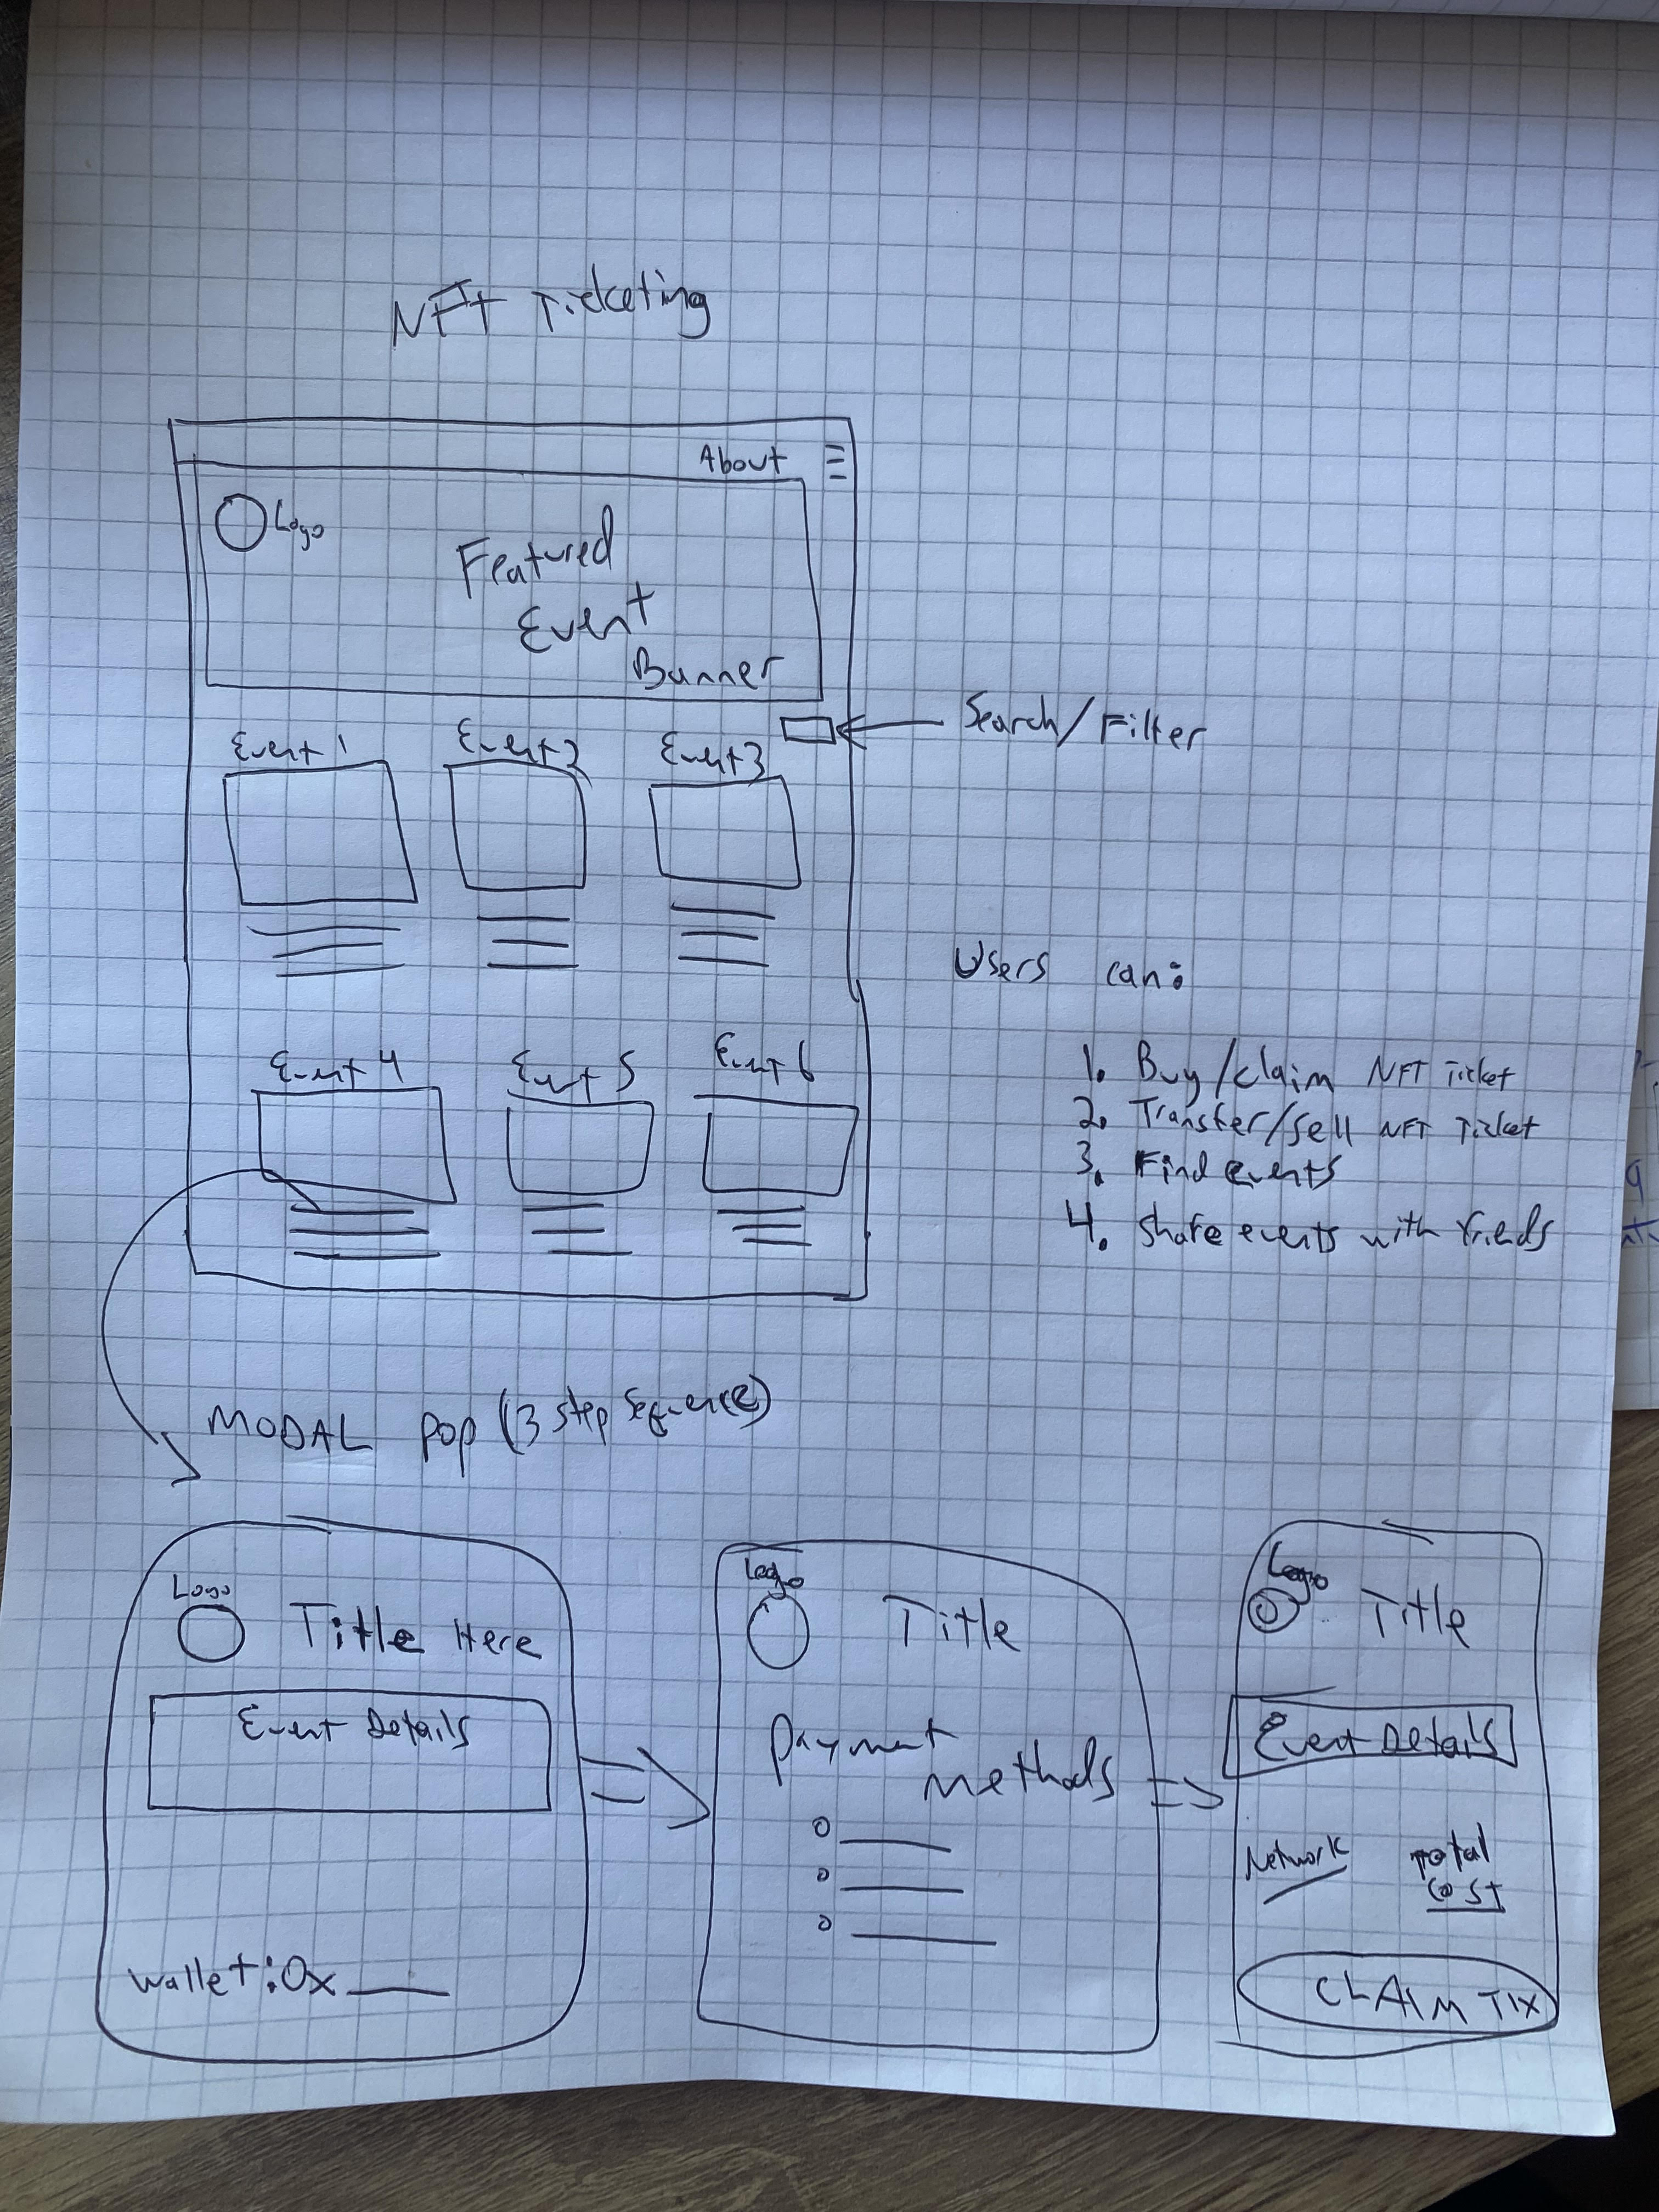 NFT Ticketing
About
Logo
Featured
Event
Banner
Search/Filter
Event 1
Event 2
Event 3
Users can:
Event 4
Event 5
Event 6
1. Buy/claim NFT Ticket
2. Transfer/sell NFT Ticket
3. Find events
4. Share events with friends
MODAL POP (3 step sequence)
Logo
Title Here
Event Details
Wallet: 0x
Logo
Title
Payment
methods
Logo
Title
Event Details
Network
Total
Cost
CLAIM TIX